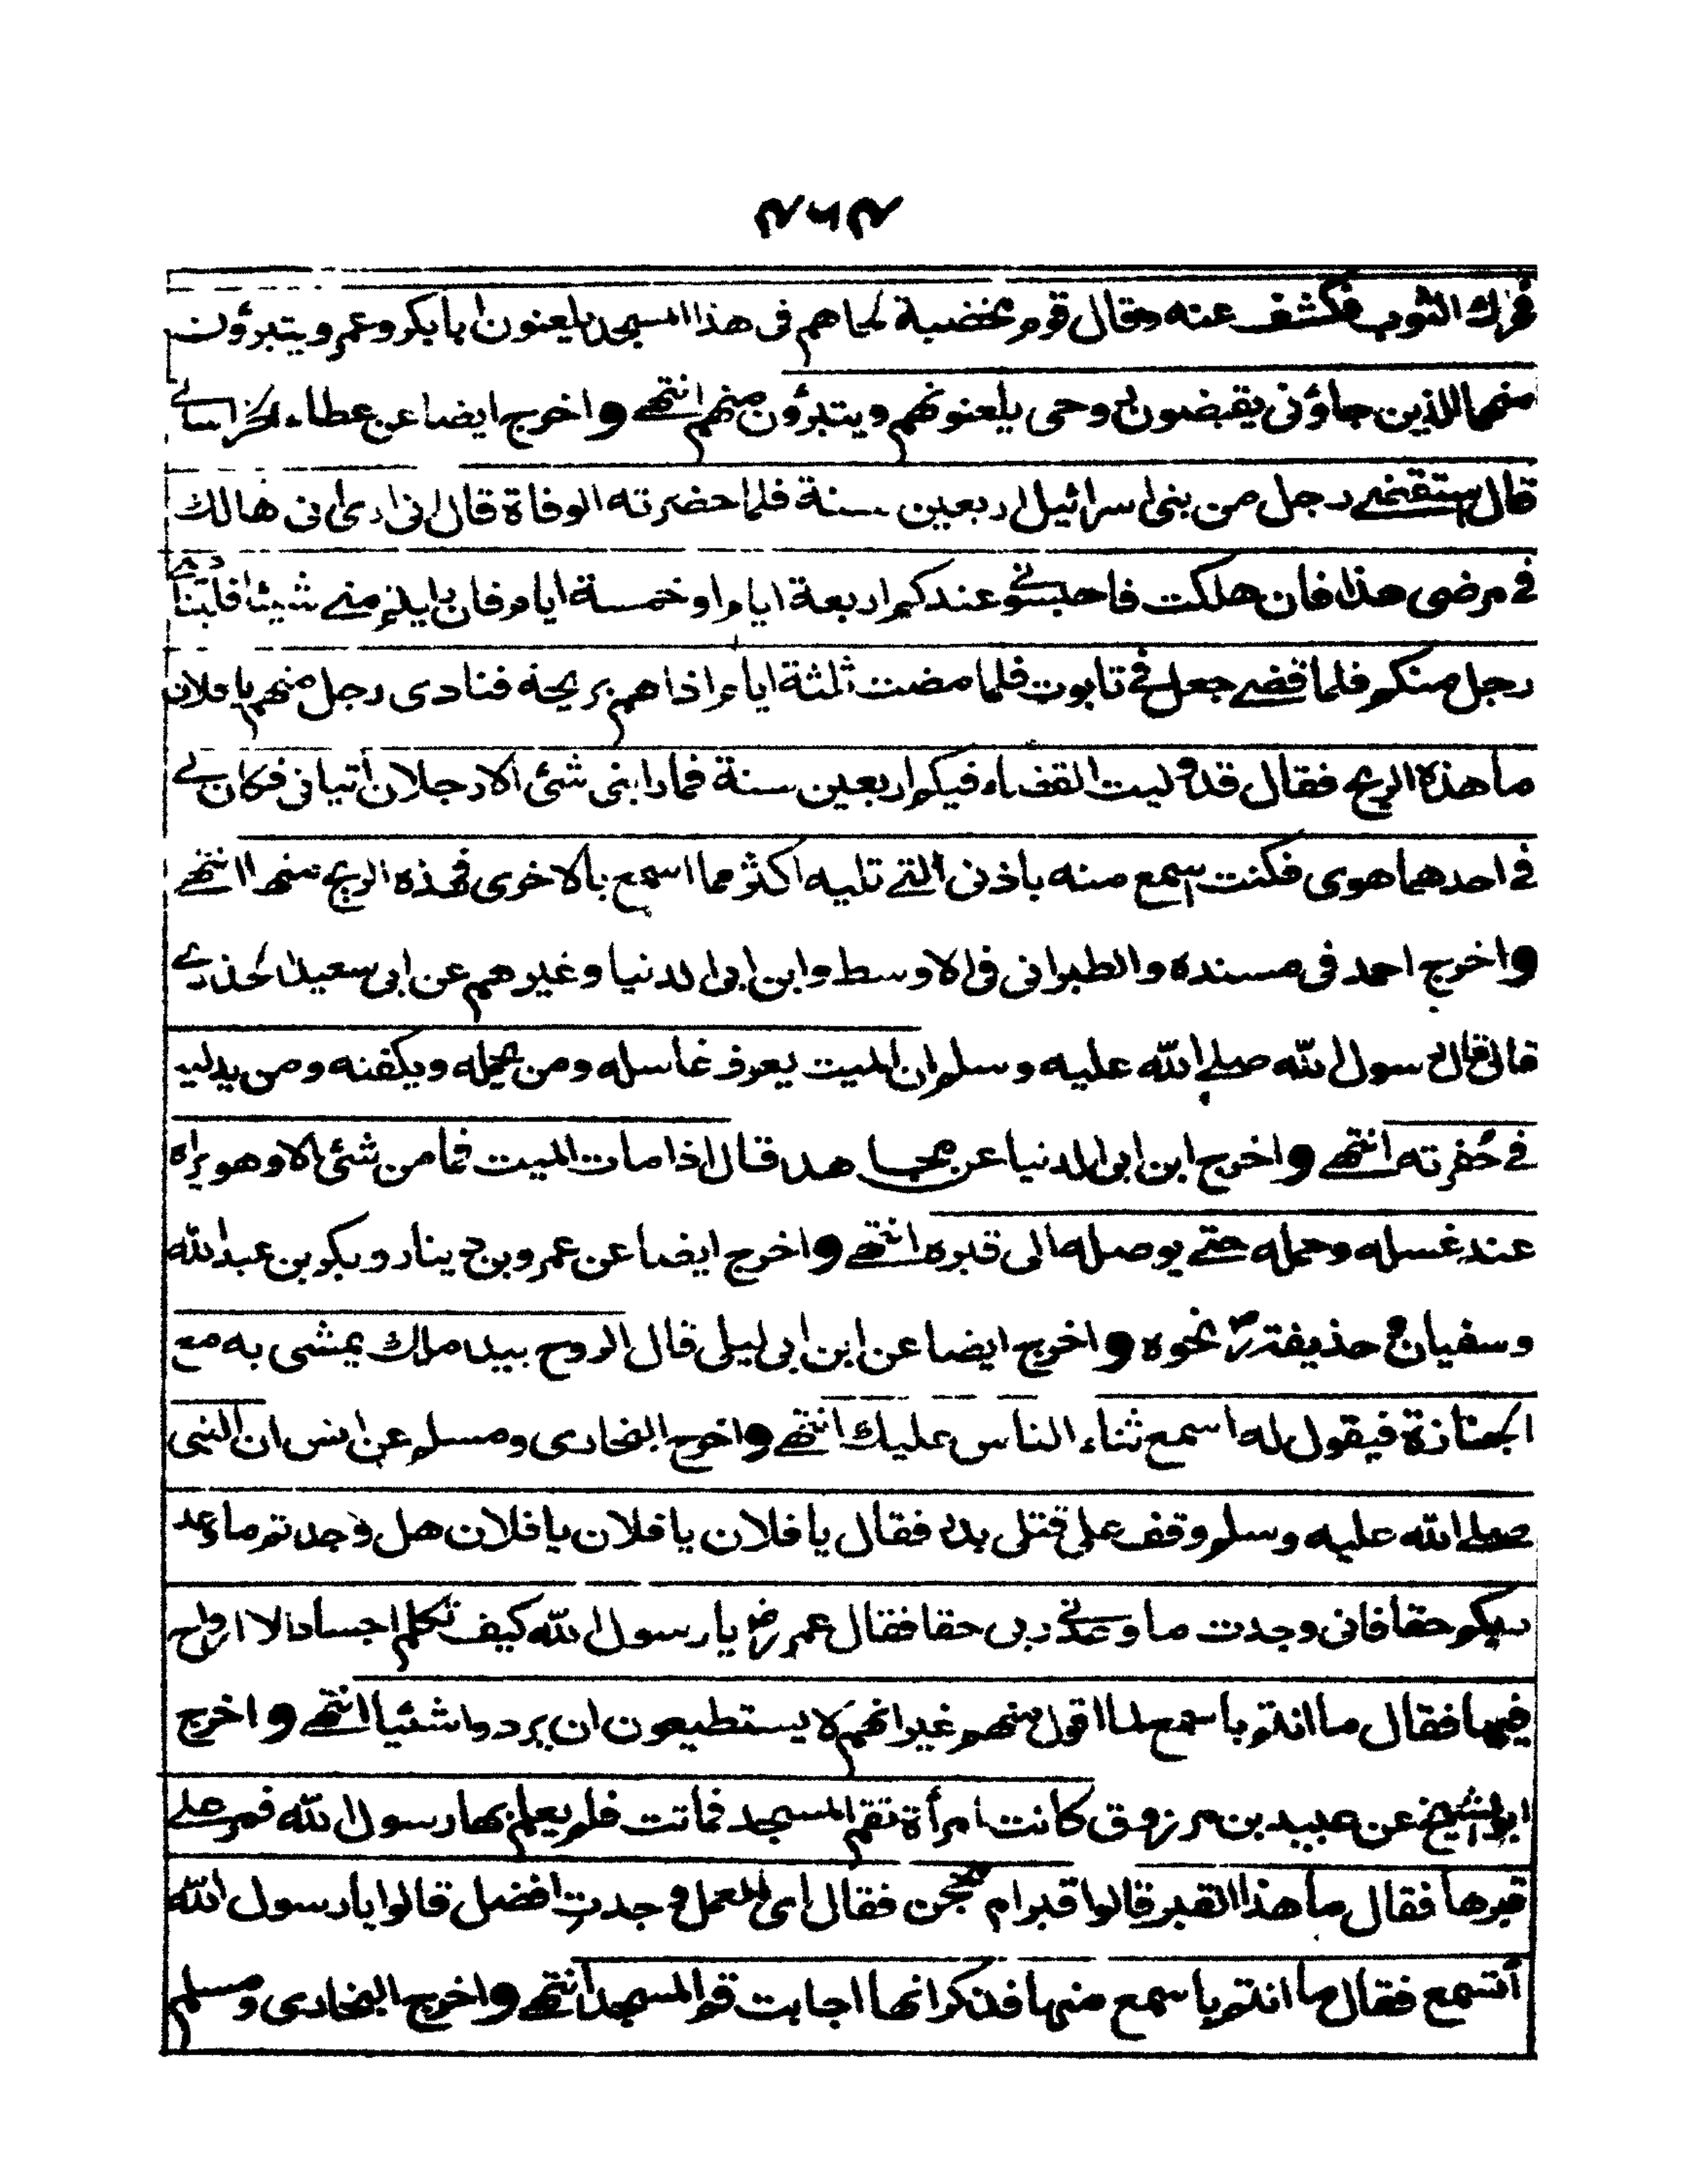 فحرك الثوب فكشف عنه وقال قوم مخضبة لحاهم فى هذا المسجد يلعنون ابا بكر وعمر ويتبرؤن
منهما الذين جاؤنى يقبضون روحى يلعنونهم ويتبرؤن منهم انتهے واخرج ايضا عن عطاء الخراسانے
قال استقضے رجل من بنى اسرائيل اربعين سنة فلما حضرته الوفاة قال انى ارى انى هالك
فے مرضى هذا فان هلكت فاحبسونے عندكم اربعة ايام او خمسة ايام فان رايتم منے شيئا فليناد
رجل منكم فلما قضے جعل فے تابوت فلما مضت ثلثة ايام اذا هم بريحه فنادى رجل منهم يا فلان
ما هذه الريح فقال قد وليت القضاء فيكم اربعين سنة فما رابنى شئ الا رجلان اتيانى فكان لے
فے احدهما هوى فكنت اسمع منه باذنى التے تليه اكثر مما اسمع بالاخرى فهذه الريح منها انتهے
واخرج احمد فى مسنده والطبرانى فى الاوسط وابن ابى الدنيا وغيرهم عن ابى سعيد الخدرے
قال قال رسول الله صلے الله عليه وسلم ان الميت يعرف غاسله ومن يحمله ويكفنه ومن يدليه
فے حُفرته انتهے واخرج ابن ابى الدنيا عن مجاهد قال اذا مات الميت فما من شئ الا وهو يراه
عند غسله وحمله حتے يوصله الى قبره انتهے واخرج ايضا عن عمرو بن دينار وبكر بن عبد الله
وسفيان وحذيفة رض نحوه واخرج ايضا عن ابن ابى ليلى قال الروح بيد ملك يمشى به مع
الجنازة فيقول له اسمع ثناء الناس عليك انتهے واخرج البخارى ومسلم عن انس ان النبى
صلے الله عليه وسلم وقف على قتلى بدر فقال يا فلان يا فلان يا فلان هل وجدتم ما وعد
ربكم حقا فانى وجدت ما وعدنے ربى حقا فقال عمر رض يا رسول الله كيف تكلم اجسادا لا ارواح
فيها فقال ما انتم باسمع لما اقول منهم غير انهم لا يستطيعون ان يردوا شئيا انتهے واخرج
ابو الشيخ عن عبيد بن مرزوق كانت امرأة تقم المسجد فماتت فلم يعلم بها رسول الله فمر علے
قبرها فقال ما هذا القبر قالوا قبر ام محجن فقال اى العمل وجدتِ افضل قالوا يا رسول الله
أتسمع فقال ما انتم باسمع منها فذكر انها اجابت قم المسجد انتهے واخرج البخارى ومسلم